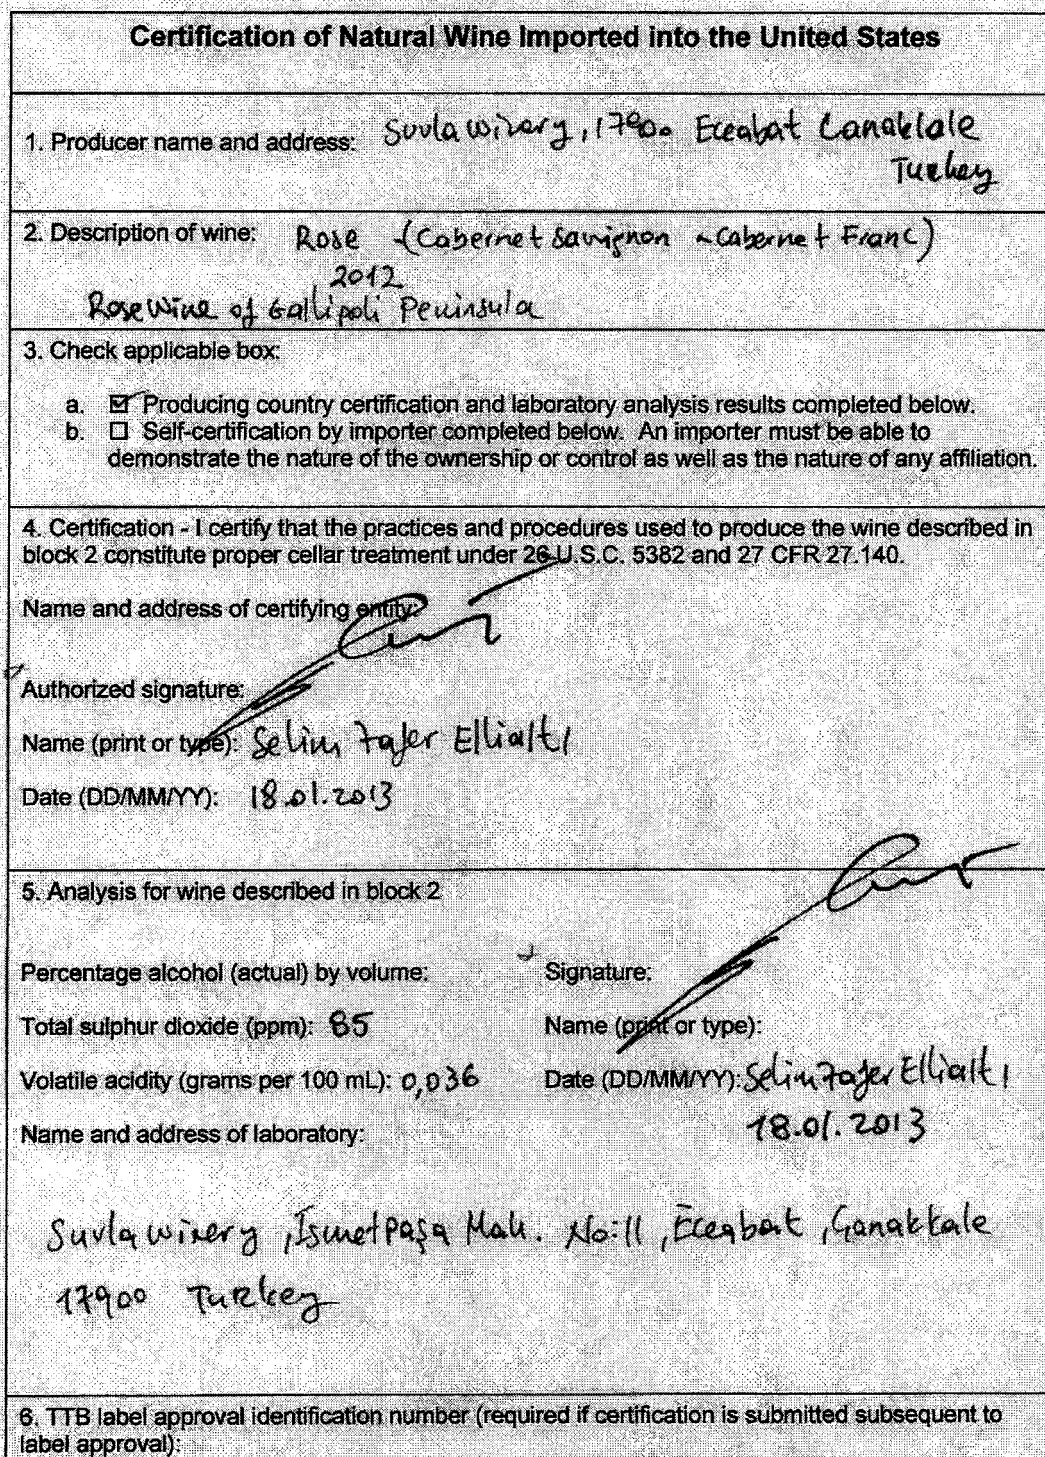 Certification of Natural Wine Imported into the United States
1. Producer name and address: Suvla winery, 17900 Eceabat Canakkale
Turkey
2. Description of wine: Rose (Cabernet Sauvignon - Cabernet Franc)
2012
Rose Wine of Gallipoli Peninsula
3. Check applicable box:
a. ☑ Producing country certification and laboratory analysis results completed below.
b. ☐ Self-certification by importer completed below. An importer must be able to
demonstrate the nature of the ownership or control as well as the nature of any affiliation.
4. Certification - I certify that the practices and procedures used to produce the wine described in
block 2 constitute proper cellar treatment under 26 U.S.C. 5382 and 27 CFR 27.140.
Name and address of certifying entity:
Authorized signature:
Name (print or type): Selim Zafer Ellialtı
Date (DD/MM/YY): 18.01.2013
5. Analysis for wine described in block 2
Percentage alcohol (actual) by volume: Signature:
Total sulphur dioxide (ppm): 85 Name (print or type):
Volatile acidity (grams per 100 mL): 0,036 Date (DD/MM/YY): Selim Zafer Ellialtı
Name and address of laboratory: 18.01.2013
Suvla winery, İsmetpaşa Mah. No:11, Eceabat, Çanakkale
17900 Turkey
6. TTB label approval identification number (required if certification is submitted subsequent to
label approval):